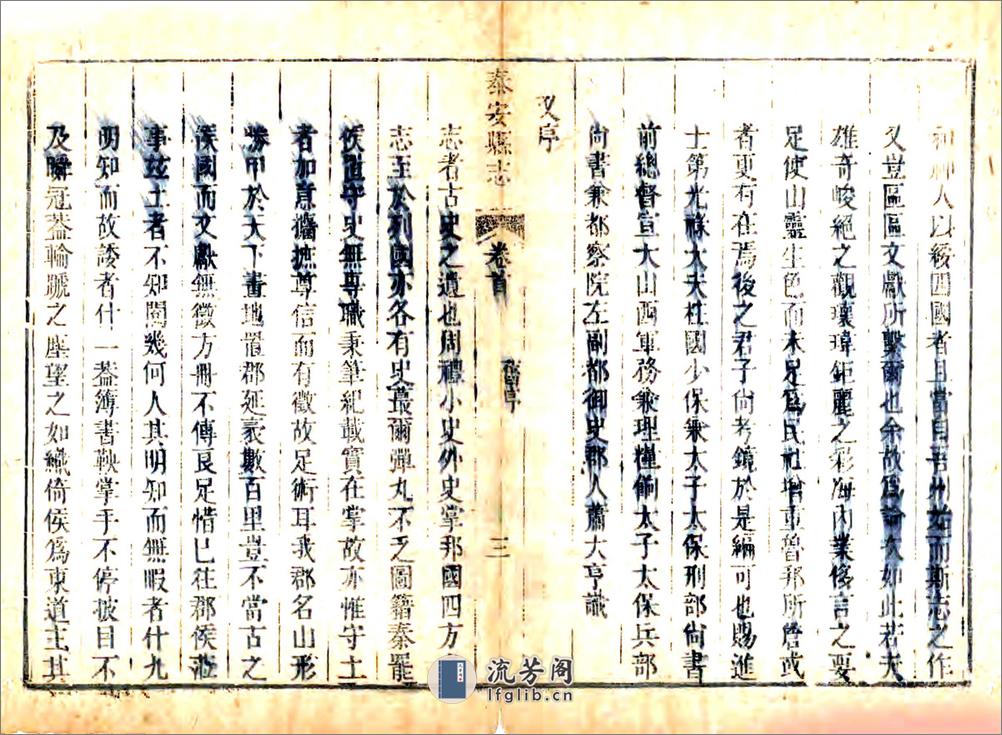 和神人以綏四國者且當自吾州始而斯志之作
又豈區區文獻所繫爾也余故爲論次如此若夫
雄奇峻絕之觀瓌瑋鉅麗之彩海內業侈言之要
足使山靈生色而未足爲民社增重魯邦所詹或
者更有在焉後之君子尙考鏡於是編可也賜進
士第光祿大夫柱國少保兼太子太保刑部尙書
前總督宣大山西軍務兼理糧餉太子太保兵部
尙書兼都察院左副都御史郡人蕭大亨識
又序
泰安縣志
卷首
舊序
三
志者古史之遺也周禮小史外史掌邦國四方之
志至於列國亦各有史蕞爾彈丸不乏圖籍秦罷
侯置守史無專職秉筆紀載實在掌故亦惟守土
者加意攟摭尊信而有徵故足術耳我郡名山形
勝甲於天下畫地置郡延袤數百里豈不當古之
侯國而文獻無徵方冊不傳良足惜已往郡侯蒞
事茲土者不知閱幾何人其明知而無暇者什九
明知而故諉者什一蓋簿書鞅掌手不停披目不
及瞬冠蓋輪蹏之塵望之如織倚侯爲東道主其
流芳阁
lfglib.cn